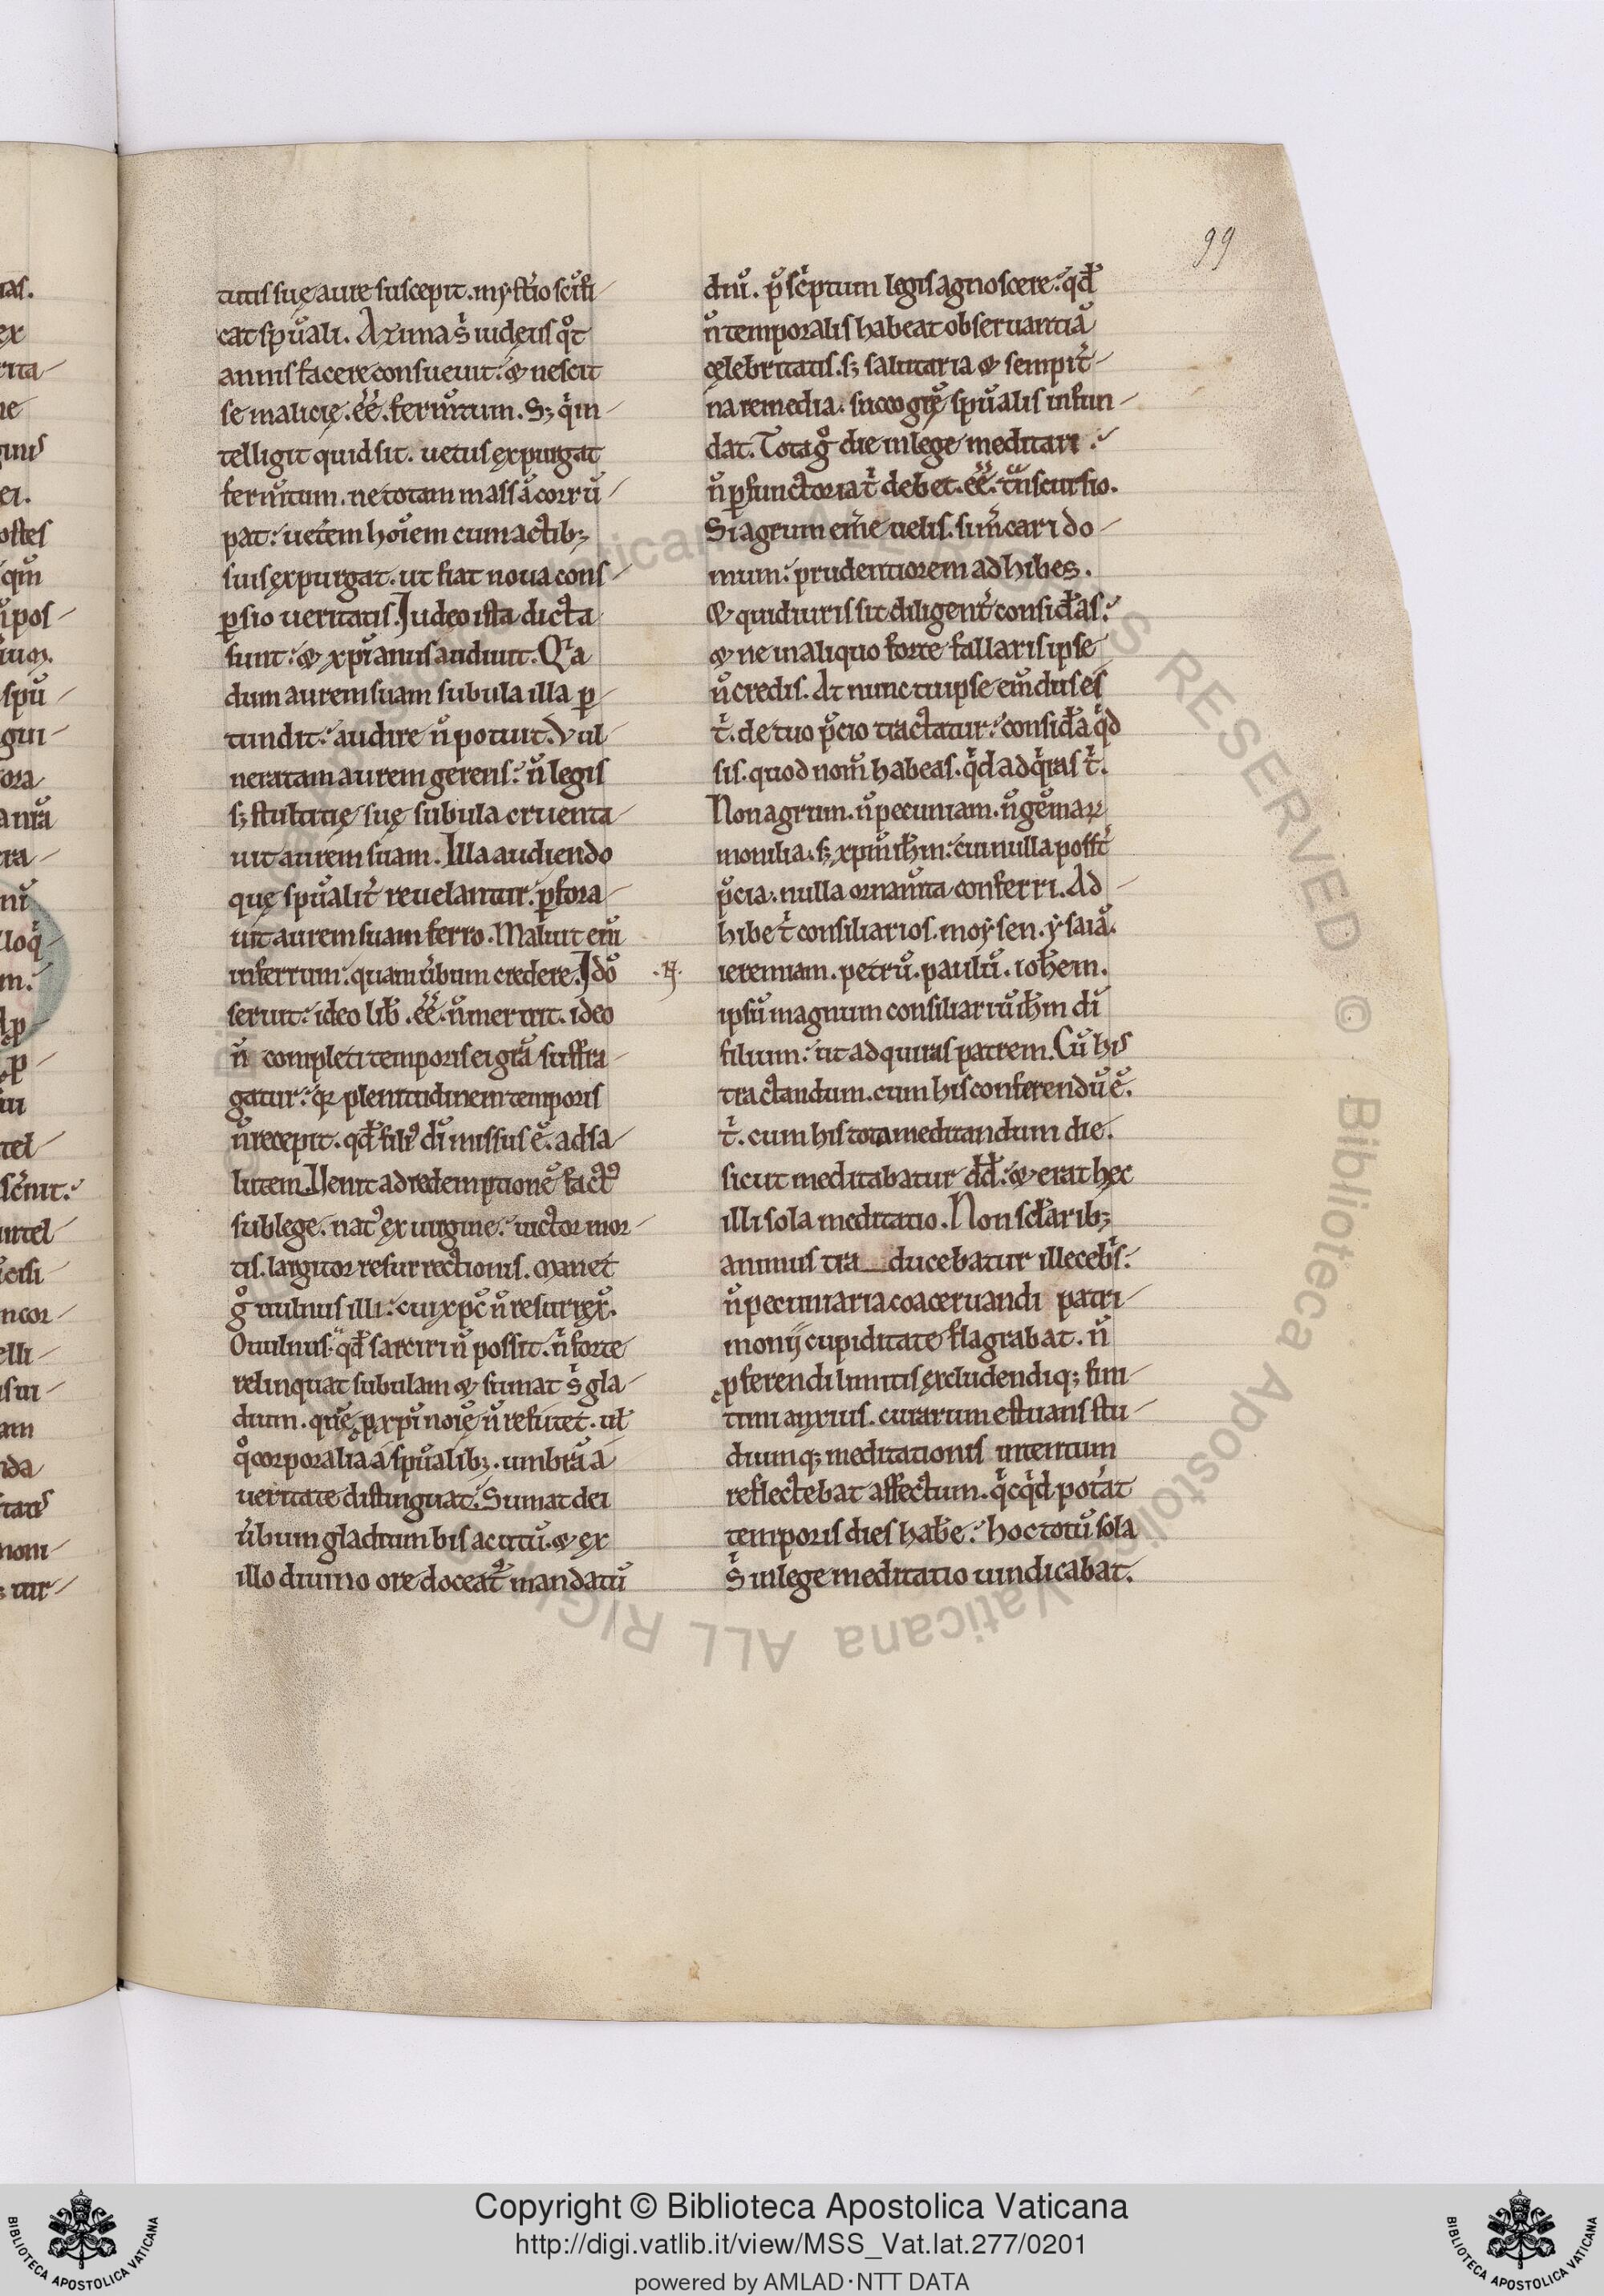 99
tutis suę aure suscepit. mystẽio scĩfi
cat spũali. Azima s̾ iudęus qͦt
annis facere consueuit: & nescit
se malicię .eẽ. ferm̃tum. S; qͥ in
telligit quid sit. uetus expurgat
ferm̃tum. ne totam massã corrũ
pat: uet̾em hoĩem cum actib;
suis expurgat. ut fiat noua cons
ꝑsio ueritatis. Iudeo ista dicta
sunt: & xp̃ianus audiuit. Qͥa
dum aurem suam subula illa ꝑ
tundit: audire ñ potuit. Vul
neratam aurem gerens: ñ legis
s; stultitię suę subula cruenta
uit aurem suam. Illa audiendo
quę spũalit̾ reuelantur. ꝑfora
uit aurem suam ferro. Maluit eĩm
in ferrum: quam u̾bum credere. Ido
seruit: ideo lib̾ .eẽ. ñ meruit. ideo
ñ completi temporis ei gr̃a suffra
gatur: qꝛ plenitudinem temporis
ñ recepit. qđ filiꝰ dĩ missus ẽ. ad sa
lutem. Uenit ad redemptionẽ factꝰ
sub lege. natꝰ ex uirgine. uictor mor
tis. largitor resurrectionis. Manet
gͦ uulnus illi: cui xp̃c ñ resurrex̃.
O uulnus qđ sarciri ñ possit. ñ forte
relinquat subulam & sumat s̾ gla
dium. quẽ ꝓ xp̃i noĩe ñ refutet. ut̃
qͦ corporalia a spũalib;. umbrã a
ueritate distinguat. Sumat dei
u̾bum gladium bis acutũ. & ex
illo diuino ore doceat̾ mandatũ
diũ. p̃scͥptum legis agnoscere: qđ
ñ temporalis habeat obseruantiã
cęlebritatis. s; salutaria & sempit̾
na remedia. succo grẽ spũalis infun
dat. Tota gͦ die in lege meditari:
ñ ꝑfunctoria t̾ debet .eẽ. tñscursio.
Si agrum em̾e uelis. sum̾cari do
mum: prudentiorem adhibes.
& quid iuris sit diligent̾ consid̾as:
& ne in aliquo forte fallaris ipse
ñ credis. At nunc tu ipse em̃dus es
t̾. de tuo p̃cio tractatur: consid̾a qͥd
sis. quod nom̃ habeas. qͥd adqͥras t̾.
Non agrum. ñ pecuniam. ñ gẽmaꝝ
monilia. s; xp̃m ih̃m: cui nulla possť
p̃cia. nulla ornam̃ta conferri. Ad
hibe t̾ consiliarios. moysen. ysaiã.
.N. ieremiam. petrũ. paulũ. ioh̃em.
ipsũ magnum consiliariũ ih̃m dĩ
filium: ut adquiras patrem. Cũ his
tractandum. cum his conferendũ ẽ.
t̾. cum his tota meditandum die.
sicut meditabatur dđ: & erat hęc
illi sola meditatio. Non scl̾arib;
animus tra__ducebatur illeceb̾s:
ñ pecuniaria coaceruandi patri
monij cupiditate flagrabat. ñ
ꝓferendi limitis excludendiq; fini
timi anxius. curarum estuans stu
diumq; meditationis intentum
reflectebat affectum. qͥcqͥd pot̾at
temporis dies hab̾e: hoc totũ sola
s̾ in lege meditatio uindicabat.
Copyright © Biblioteca Apostolica Vaticana
http://digi.vatlib.it/view/MSS_Vat.lat.277/0201
powered by AMLAD·NTT DATA